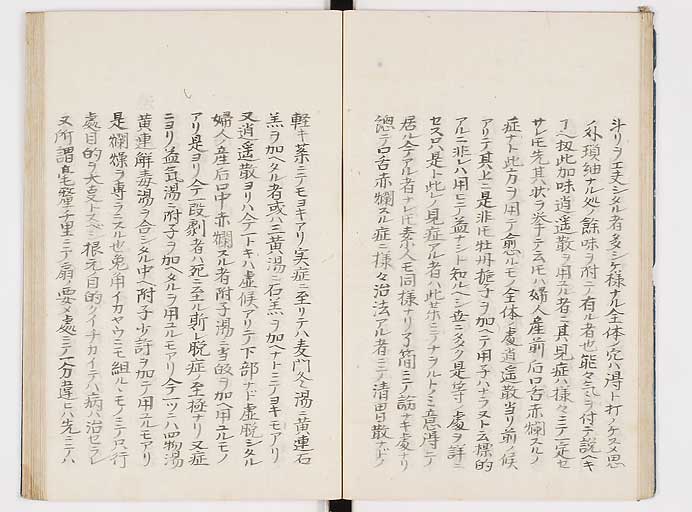 斗リヲ工夫シタル者多シケ様ナル全体ノ穴ハ得ト打ノケスメ思
ノ外瑣細ナル処ノ餘味ヲ附テ有ル者也能々心ヲ付テ説ヘキ
ﾌﾍ扨此加味逍遥散ヲ用ユル者ニ其見症ハ様々ニテ一定セ
サレ𪜈先其状ヲ挙テ云ヘハ婦人産前后口舌赤爛スルノ
症ナト此方ヲ用テ愈ルモノ全体ノ處逍遥散当リ前ノ候
アリテ其上ニ是非𪜈牡丹梔子ヲ加ヘテ用子ハナラヌト云標的
アルニ非レハ用ヒテ益ナシト知ルヘシ世ニタタク是等ノ處ヲ詳ニ
セス只是ト此レノ見症アル者ハ此茱ニテナヲルト ノミ意得テ
居ル今アル者ナレ𪜈素人モ同様ナリ了簡ニテ訪ナキ處ナリ
總テ口舌赤爛スル症ニ様々治法アル者ニテ清胃散ナドノ
軽キ薬ニテモヨキアリ実症ニ至リテハ麦門冬湯ニ黄連石
羔ヲ加ヘタル者或ハ三黄湯ニ石羔ヲ加ヘナトニテヨキモアリ
又逍遥散ヨリハ今一トキハ虚候アリテ下部ナド虚脱シタル
婦人ノ産后口中赤爛スル者附子湯ニ当皈ヲ加ヘ用ユルモノ
アリ是ヨリ今一段劇者ハ死ニ至ル斯レ脱症ノ至極ナリ又症
ニヨリ益気湯ニ附子ヲ加ヘタルヲ用ユルモアリ今一ツニハ四物湯
黄連解毒湯ヲ合シタル中ヘ附子少許ヲ加テ用ユルモアリ
是爛燥ヲ専ラニスル也兔角イカヤウニモ組ルヽモノニテ只行
處目的ヲ大支トスヘシ根元目的ノイチカイテハ病ハ治セラレ
又所謂毫釐千里ニテ扇ノ要メ處ニテ一分違ヒハ先ニテハ